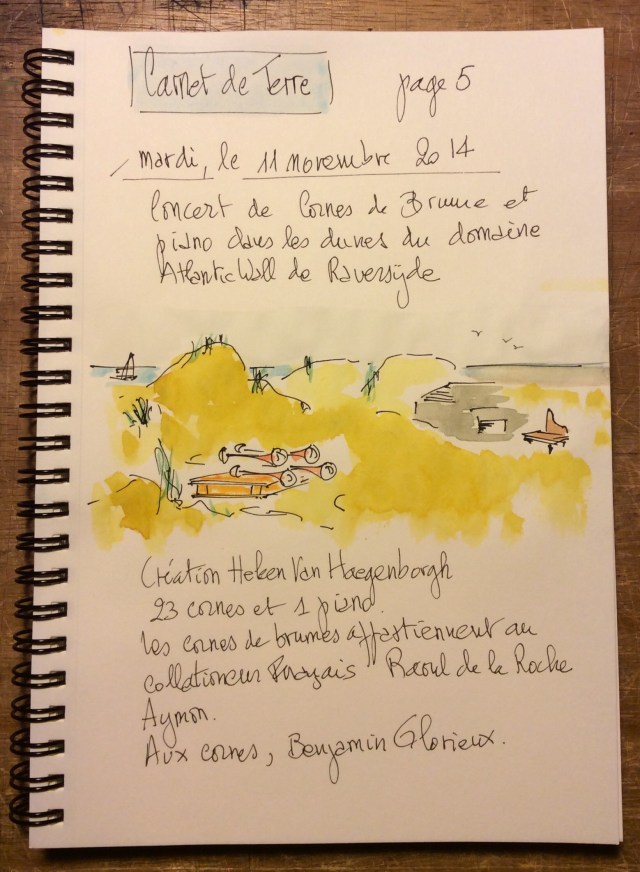 Carnet de Terre
page 5
mardi, le 11 novembre 2014
Concert de Cornes de Brume et
piano dans les dunes du domaine
Atlantic Wall de Raversyde
Création Heleen Van Haegenborgh
23 cornes et 1 piano.
les cornes de brumes appartiennent au
collationeur Français Raoul de la Roche
Aymon.
Aux cornes, Benjamin Glorieux.